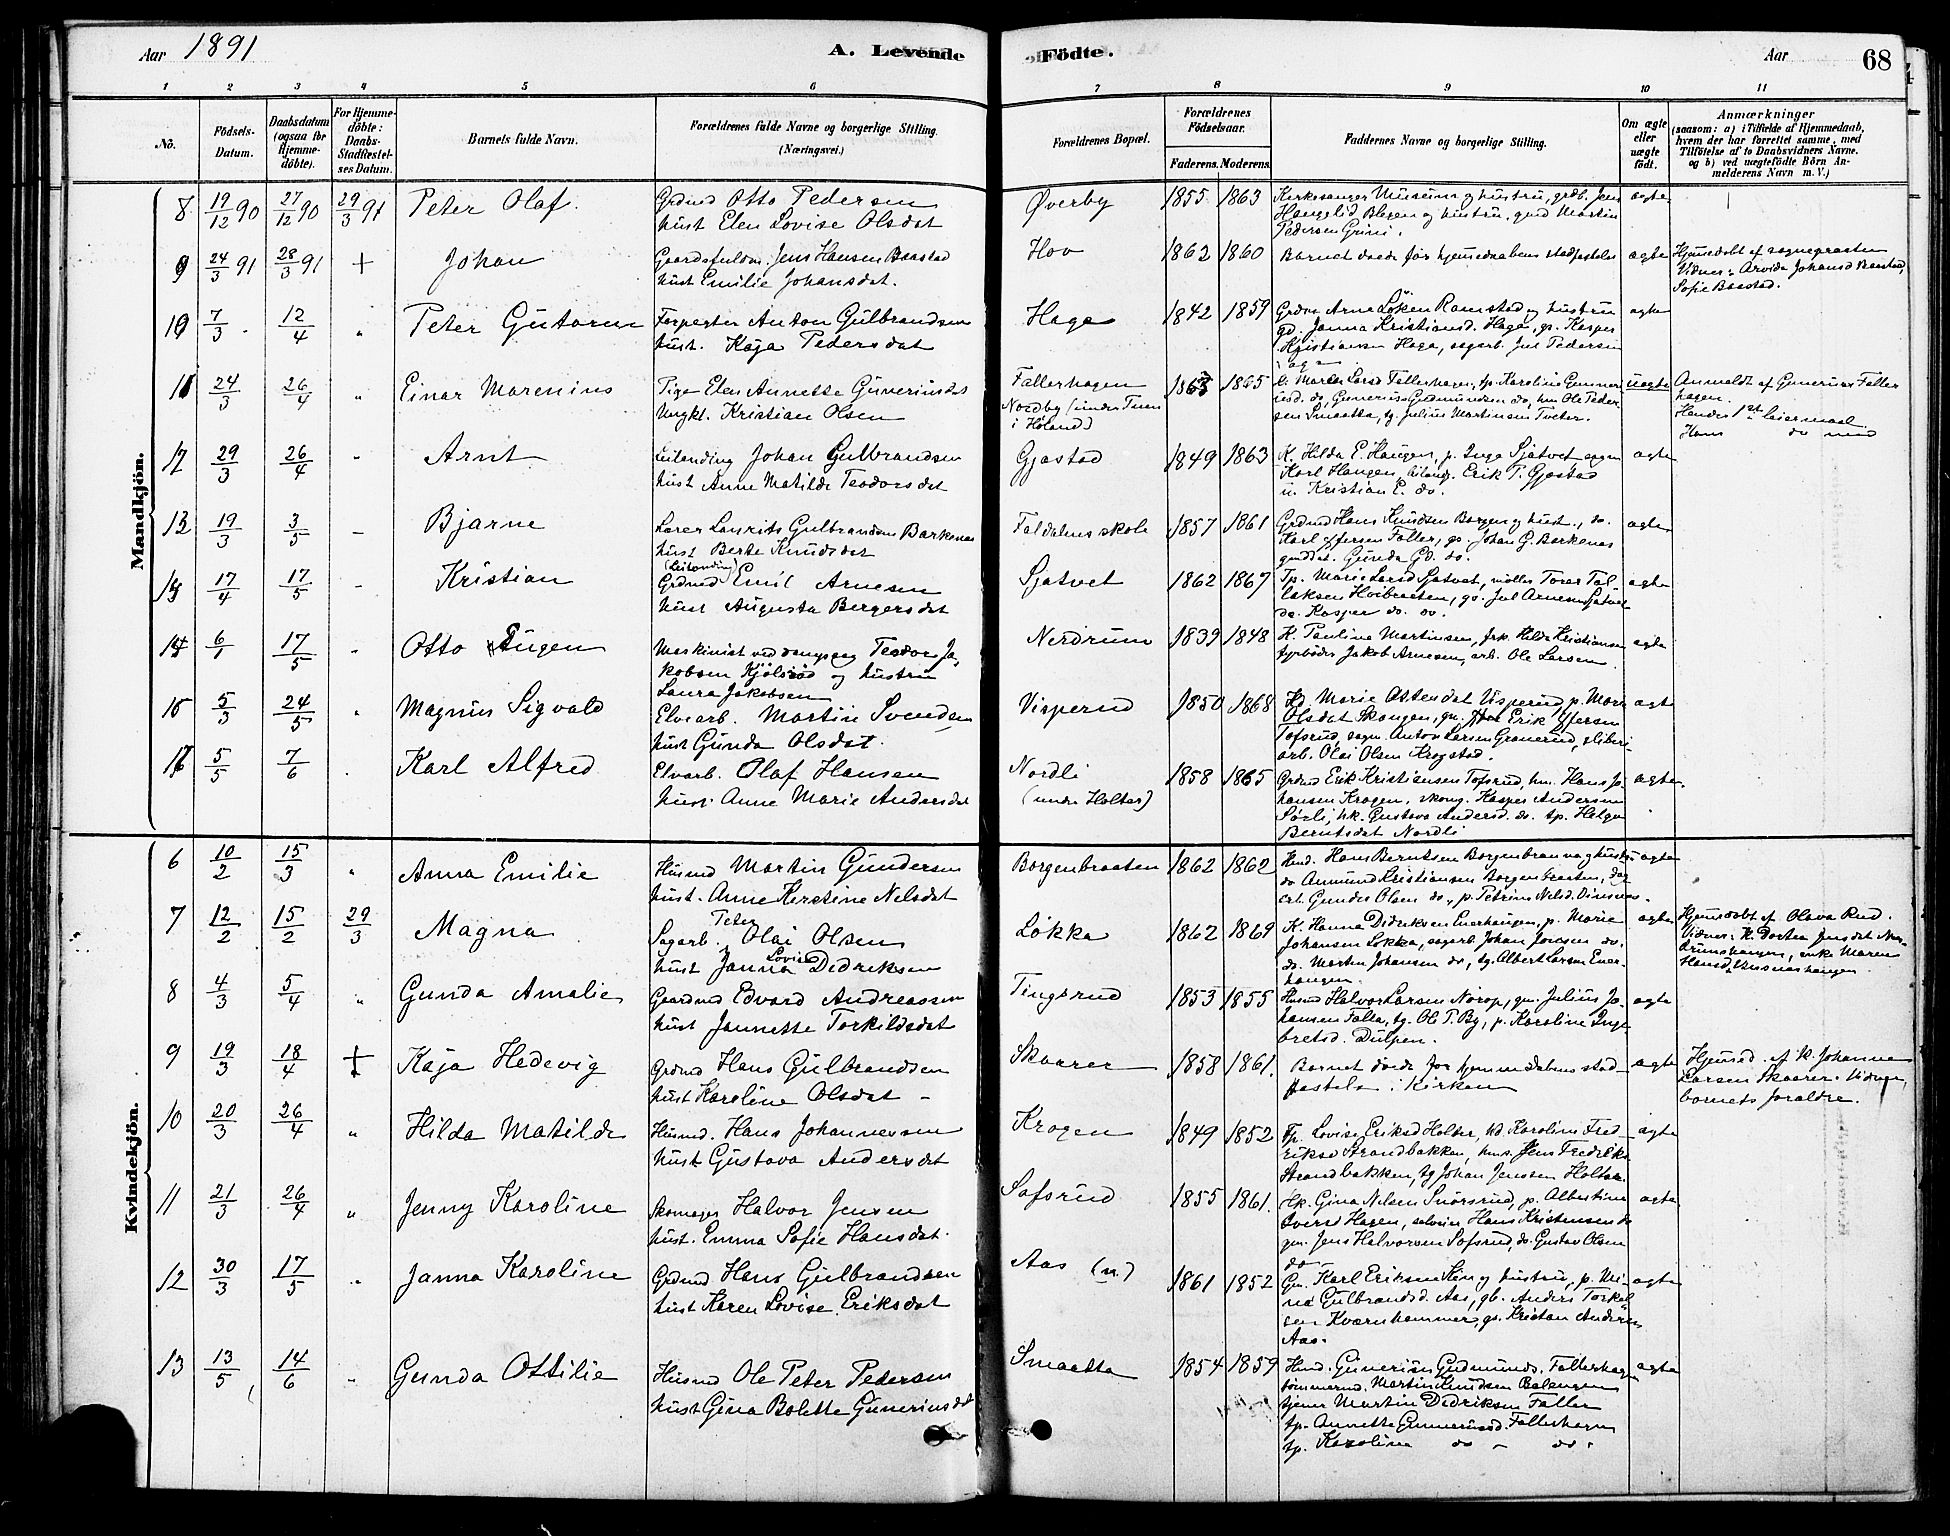 Aar 1891
A. Levende
Födte.
Aar
68
1 2 3 4 5 6 7 8 9 10 11
No.
Födsels-Datum.
Daabsdatum (ogsaa for Hjemme-döbte).
For Hjemme-döbte: Daabs-Stadfæstel-ses Datum.
Barnets fulde Navn.
Forældrenes fulde Navne og borgerlige Stilling.
(Næringsvei.)
Forældrenes Bopæl.
Forældrenes Födselsaar.
Faderens. Moderens.
Faddernes Navne og borgerlige Stilling.
Om ægte eller uægte født.
Anmærkninger
(saasom: a) i Tilfælde af Hjemmedaab, hvem der har forrettet samme, med Tilföielse af to Daabsvidners Navne. og b) ved uægtefödte Börn Anmelderens Navn m. V.)
Mandkjön.
8 19/12 90 27/12 90 29/3 91 Peter Olaf. Grdmd Otto Pedersen
hust Elen Lovise Olsdat
Øverby 1855 1863 Kirkesanger Museum og hustru, grdb. Jens
Haugelid Blegen og hustru, gmd Martin
Pedersen Grini.
ægte
9 24/3 91 28/3 91 + Johan Gaardsfuldm. Jens Hansen Baastad
hust Emilie Johansdat.
Hov 1862 1860 Barnet døde før hjemmedaabens stadfæstelse ægte
Hjemedøbt af sognepræsten
Vidner: Arvida Johansd Baastad
Sofie Baastad.
10 7/3 12/4 " Peter Gutorm Forpagter Anton Gulbrandsen
hust. Kaja Pedersdat
Haga 1842 1859 Grdm Arne Løken Ramstad og hustru
gd. Janna Kristiansd. Haga, gs. Kasper
Kristiansen Haga, sagarb. Jul Pedersen
ægte
11 24/3 26/4 " Einar Marenius Pige Elen Annette Guneriusdat
Ungkl. Kristian Olsen
Fallerhagen
Nordby (under Tuen
i Høland)
1863 1865
uægte
Anmeldt af Gunerius Faller
hagen.
Hendes 1st leiermaal
Hans do med
12 29/3 26/4 " Arnt Leilending Johan Gulbrandsen
hust Anne Matilde Teodorsdat
Gjøstad 1849 1863 K. Hilda E. Haugen, p. Inga Sjatvet
Karl Haugen, leilendg. Erik T. Gjøstad
u. Kristian E. do.
ægte
13 19/3 3/5 - Bjarne Lærer Laurits Gulbrandsen Barkenæs
hust Berte Knudsdat
Faldalens skole 1857 1861 Grdmd Hans Knudsen Borgen og hust., do.
Karl Iffersen Faller, gs. Johan G. Barkenæs
gmddat. Gunda Gd. do.
ægte
14 17/4 17/5 - Kristian (Leilending)
Grdmd Emil Arnesen
hust Augusta Bergersdat
Sjatvet 1862 1867 Tp. Marie Larsd Sjatvet, møller Torer Tol
laksen Høibraaten, gs. Jul Arnesen Sjatvet
do. Kasper do. do.
ægte
14 6/1 17/5 " Otto Eugen Maskinist ved dampsag Teodor Ja
kobsen Kjølsrød og hustru
Laura Jakobsen
Nerdrum 1839 1848 K. Pauline Martinsen, frk. Hilda Kristiansen
fyrbøder Jakob Arnesen, arb. Ole Larsen.
ægte
15 5/3 24/5 " Magnus Sigvald Elvearb. Martin Svendsen
hust Gunda Olsdat.
Visperud 1850 1868 Hd. Marie Ottendat Visperud, p. Mari
Olsdat Skaugen, gm. Erik Iffersen
Tofsrud, sagm. Anton Larsen Granerud, sliberi
arb. Olai Olsen Krogstad.
ægte
16 5/5 7/6 Karl Alfred Elvarb. Olaf Hansen
hust. Anne Marie Andersdat
Nordli
(under Holter)
1858 1865 Grdmd Erik Kristiansen Tofsrud, hm. Hans Jo
hansen Krogen, skomg. Kasper Andersen
Sørli, hk. Gustava Andersd. do. tp. Helga
Berntsdat Nordli
ægte.
Kvindekjön.
6 10/2 15/3 " Anna Emilie Husmd Martin Gundersen
hust. Anne Kirstine Nelsdat
Borgenbraaten 1862 1862 Hmd. Hans Berntsen Borgenbraaten og hustru
do Anmund Kristiansen Borgenbraaten, dag
arb. Gunder Olsen do, p. Petrine Nelsd. Dinesen.
ægte
7 12/2 15/2 29/3 Magna Peter
Sagarb. Olai Olsen
hust Janna Lovise Didriksen
Løkka 1862 1869 K. Hanna Didriksen Enerhaugen, p. Marie
Johansen Løkka, sagarb Johan Jonsen do.
do. Martin Johansen do, tg. Albert Larsen Ener-
haugen.
ægte
Hjemedøbt af Olava Rud.
Vidner: K. Dortea Jensdat Ner-
drumshaugen, enke Maren
Hansd. Musnæshaugen.
8 4/3 5/4 " Gunda Amalie Gaardmd Edvard Andreassen
hust Jannette Torkildsdat
Tingsrud 1853 1855 Husmd Halvor Larsen Norop, gm. Julius Jo
hansen Falla, tg. Ole T. By, p. Karoline Inge
bretsd. Dulpen.
ægte
9 19/3 18/4 + Kaja Hedevig Grdmd Hans Gulbrandsen
hust Karoline Olsdat -
Skaarer 1858 1861. Barnet døde før hjemmedaabens stad
fæstelse i Kirken
ægte
Hjemed. af K. Johanne
Larsen Skaarer. Vidner,
barnets forældre.
10 20/3 26/4 " Hilda Matilde Husmd. Hans Johannessen
hust Gustava Andersdat
Krogen 1849 1852 Tp. Lovise Eriksd Holter, hd. Karoline Fred
riksd Strandbakken, hms. Jens Fredriks
Strandbakken, tg Johan Jensen Holter
ægte
11 21/3 26/4 " Jenny Karoline Skomager Halvor Jensen
hust. Emma Sofie Hansdat.
Sofsrud 1855 1861. Hk. Gina Nilsen Snorsrud, p. Albertine
Iversd Hagen, selveier Hans Kristensen do
gm. Jens Halvorsen Sofsrud, do. Gustav Olsen
do -
ægte
12 30/3 17/5 " Janna Karoline Grdmd Hans Gulbrandsen
hust Karen Lovise Eriksdat
Aas (n.) 1861 1852 Gm. Karl Eriksen Hein og hustru, p. Mi-
na Gulbrandsd. Aas, gb. Anders Torkel
sen Kværnhammer, gs. Kristian Andersen
Aas.
ægte
13 13/5 14/6 " Gunda Ottilie Husmd Ole Peter Pedersen
hust Gina Bolette Guneriusdat
Smaatta 1854 1859 Husmd. Gunerius Gudmunds. Fallerhagen
tømmermd. Martin Knudsen Bølengen
tjener Martin Didriksen Faller
tp. Annette Gunneriusd. Fallerhagen
tp. Karoline do - do.
ægte